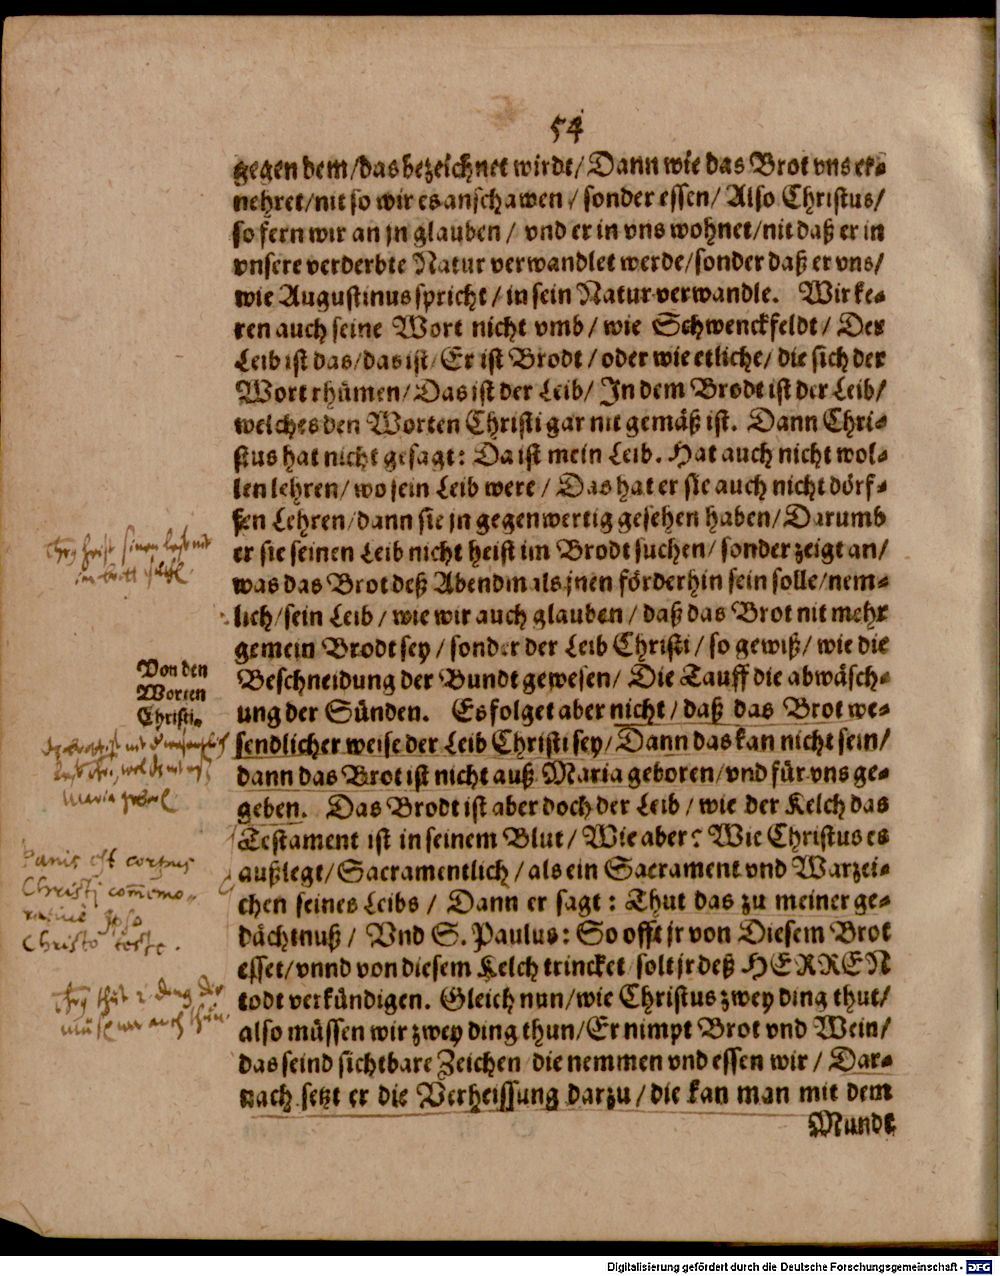 54
gegen dem/das bezeichnet wirdt/ Dann wie das Brot vns er-
nehret/nit so wir es anschawen / sonder essen/ Also Christus/
so fern wir an jn glauben / vnd er in vns wohnet/nit daß er in
vnsere verderbte Natur verwandlet werde/sonder daß er vns/
wie Augustinus spricht / in sein Natur verwandle. Wir ke-
ren auch seine Wort nicht vmb / wie Schwenckfeldt / Der
Leib ist das/das ist/ Er ist Brodt / oder wie etliche/ die sich der
Wort rhümen/ Das ist der Leib/ In dem Brodt ist der Leib/
welches den Worten Christi gar nit gemäß ist. Dann Chri-
stus hat nicht gesagt: Da ist mein Leib. Hat auch nicht wol-
len lehren/ wo sein Leib were / Das hat er sie auch nicht dörf-
fen Lehren/dann sie jn gegenwertig gesehen haben/ Darumb
er sie seinen Leib nicht heist im Brodt suchen/ sonder zeigt an/
was das Brot deß Abendmals jnen förderhin sein solle/nem-
lich/sein Leib / wie wir auch glauben / daß das Brot nit mehr
gemein Brodt sey / sonder der Leib Christi / so gewiß/ wie die
Von den
Worten
Christi.
Beschneidung der Bundt gewesen/ Die Tauff die abwäsch-
ung der Sünden. Es folget aber nicht / daß das Brot we-
sendlicher weise der Leib Christi sey/ Dann das kan nicht sein/
dann das Brot ist nicht auß Maria geboren/vnd für vns ge-
geben. Das Brodt ist aber doch der Leib / wie der Kelch das
Testament ist in seinem Blut / Wie aber? Wie Christus es
Panis est corpus
Christi
Christo
außlegt/ Sacramentlich / als ein Sacrament vnd Warzei-
chen seines Leibs / Dann er sagt : Thut das zu meiner ge-
dächtnuß / Vnd S. Paulus: So offt jr von Diesem Brot
esset/vnnd von diesem Kelch trincket / solt jr deß HERREN
todt verkündigen. Gleich nun/wie Christus zwey ding thut/
also müssen wir zwey ding thun/Er nimpt Brot vnd Wein/
das seind sichtbare Zeichen die nemmen vnd essen wir / Dar-
nach setzt er die Verheissung darzu / die kan man mit dem
Mundt
Digitalisierung gefördert durch die Deutsche Forschungsgemeinschaft - DFG